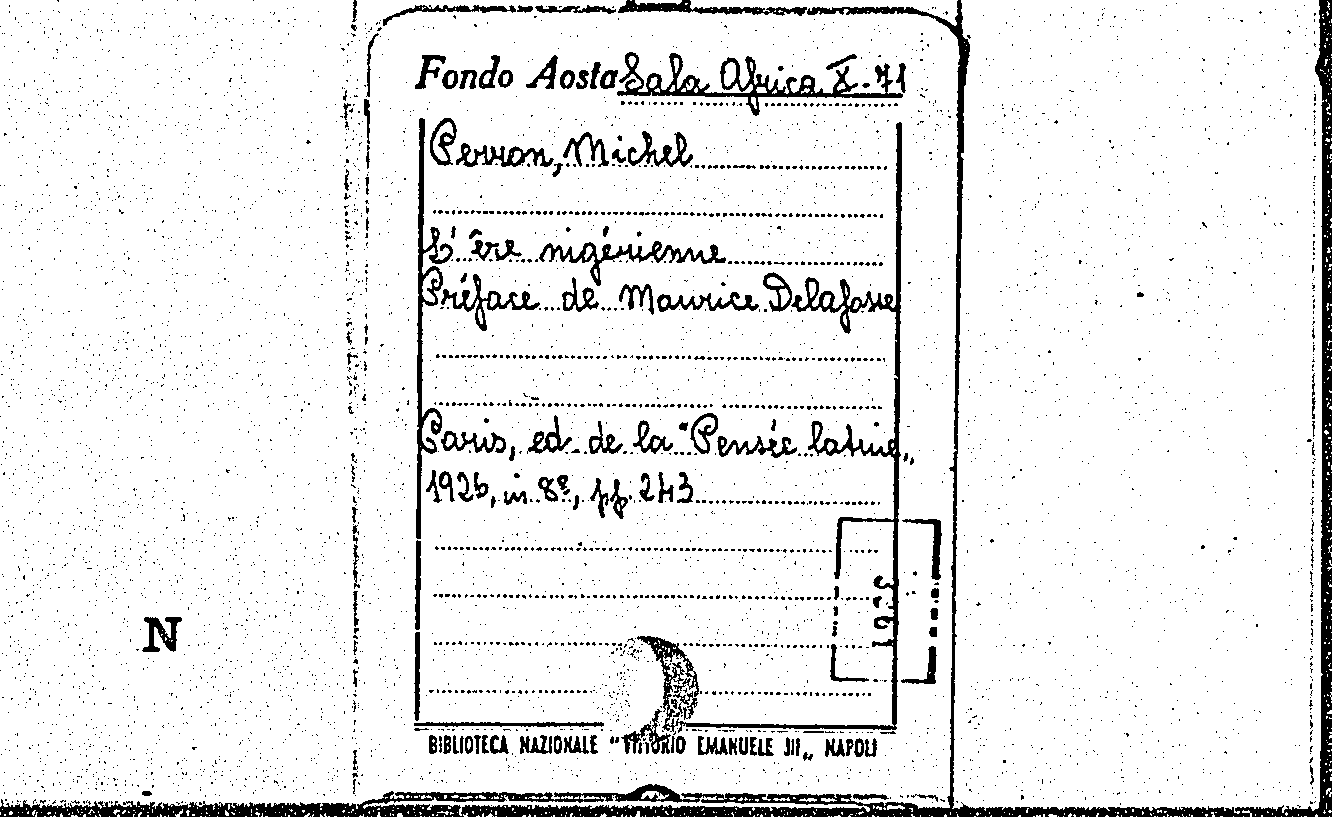 Fondo Aosta Sala Africa X-71
Perron, Michel
L'ère nigérienne
Préface de Maurice Delafosse
Paris, ed. de la "Pensée latine„
1926, in 8º, pp. 243
N
BIBLIOTECA NAZIONALE "VITTORIO EMANUELE III„ NAPOLI